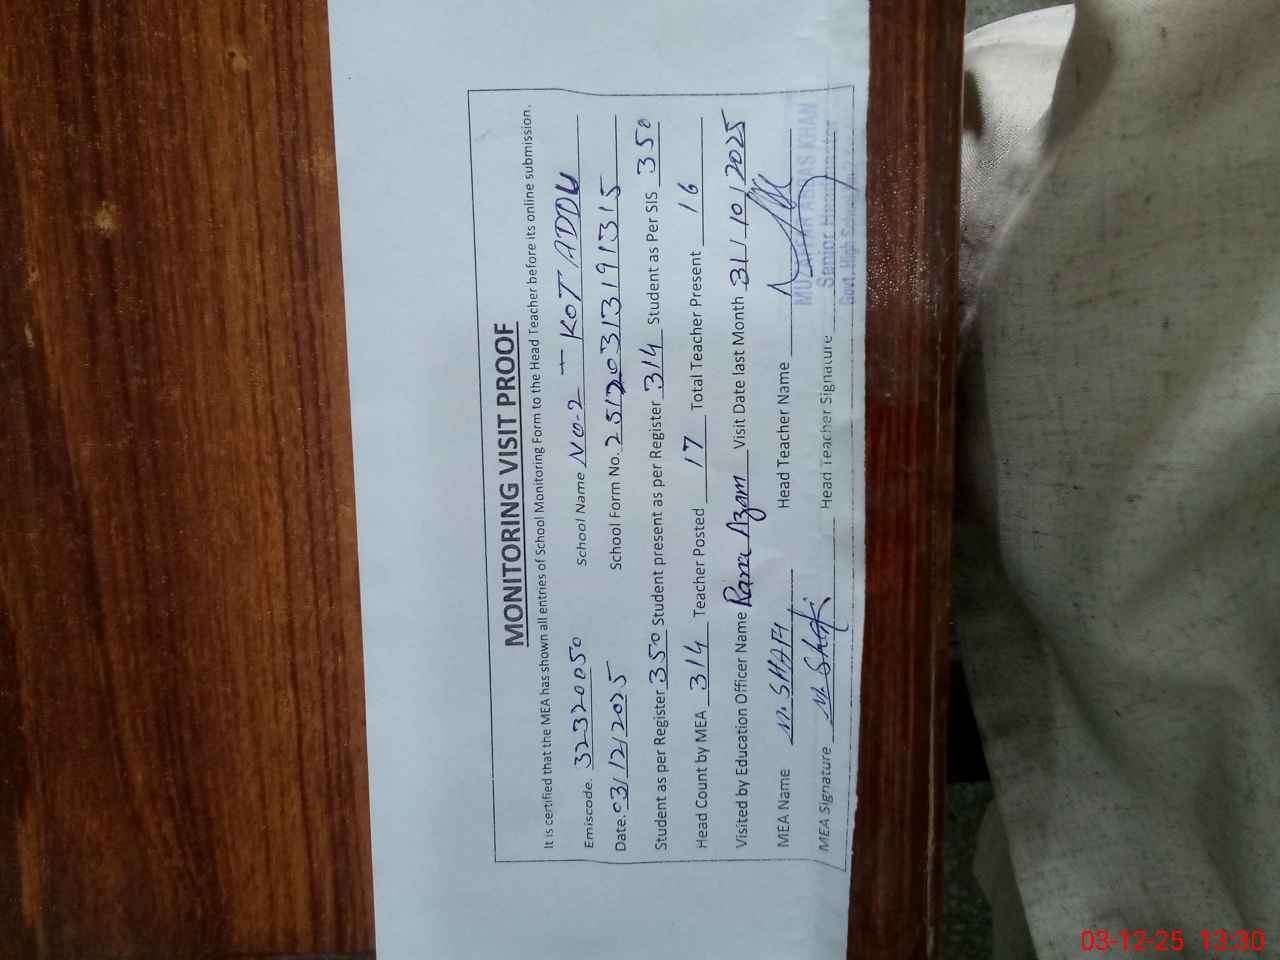 MONITORING VISIT PROOF
It is certified that the MEA has shown all entries of School Monitoring Form to the Head Teacher before its online submission.
Emiscode. 32320050 School Name No-2 - KOT ADDU
Date. 03/12/2025 School Form No. 2512031319 1315
Student as per Register 350 Student present as per Register 314 Student as Per SIS 350
Head Count by MEA 314 Teacher Posted 17 Total Teacher Present 16
Visited by Education Officer Name Rana Azam Visit Date last Month 31/10/2025
MEA Name M. SHAFI Head Teacher Name
MEA Signature M. Shafi Head Teacher Signature
ABBAS KHAN
Senior
Govt. High School
03-12-25 13:30